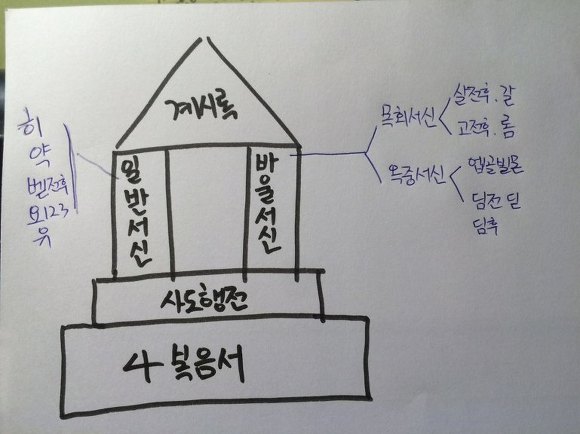 계시록
일반서신
바울서신
사도행전
4 복음서
히
약
벧전후
요123
유
목회서신
살전후.갈
고전후.롬
옥중서신
엡골빌몬
딤전 딛
딤후